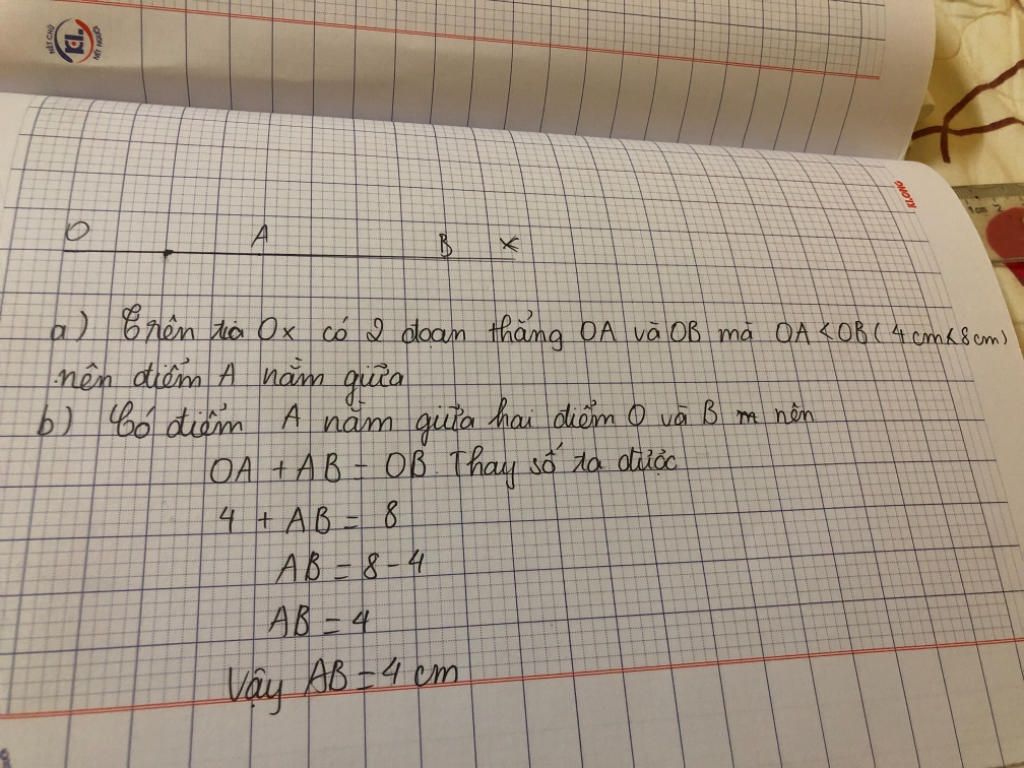 NÉT CHỮ
KL
NẾT NGƯỜI
KLONG
1cm 2
O A B x
a) Trên tia Ox có 2 đoạn thẳng OA và OB mà OA < OB (4cm < 8cm)
nên điểm A nằm giữa
b) Có điểm A nằm giữa hai điểm O và B m nên
OA + AB = OB. Thay số ta được
4 + AB = 8
AB = 8 - 4
AB = 4
Vậy AB = 4 cm